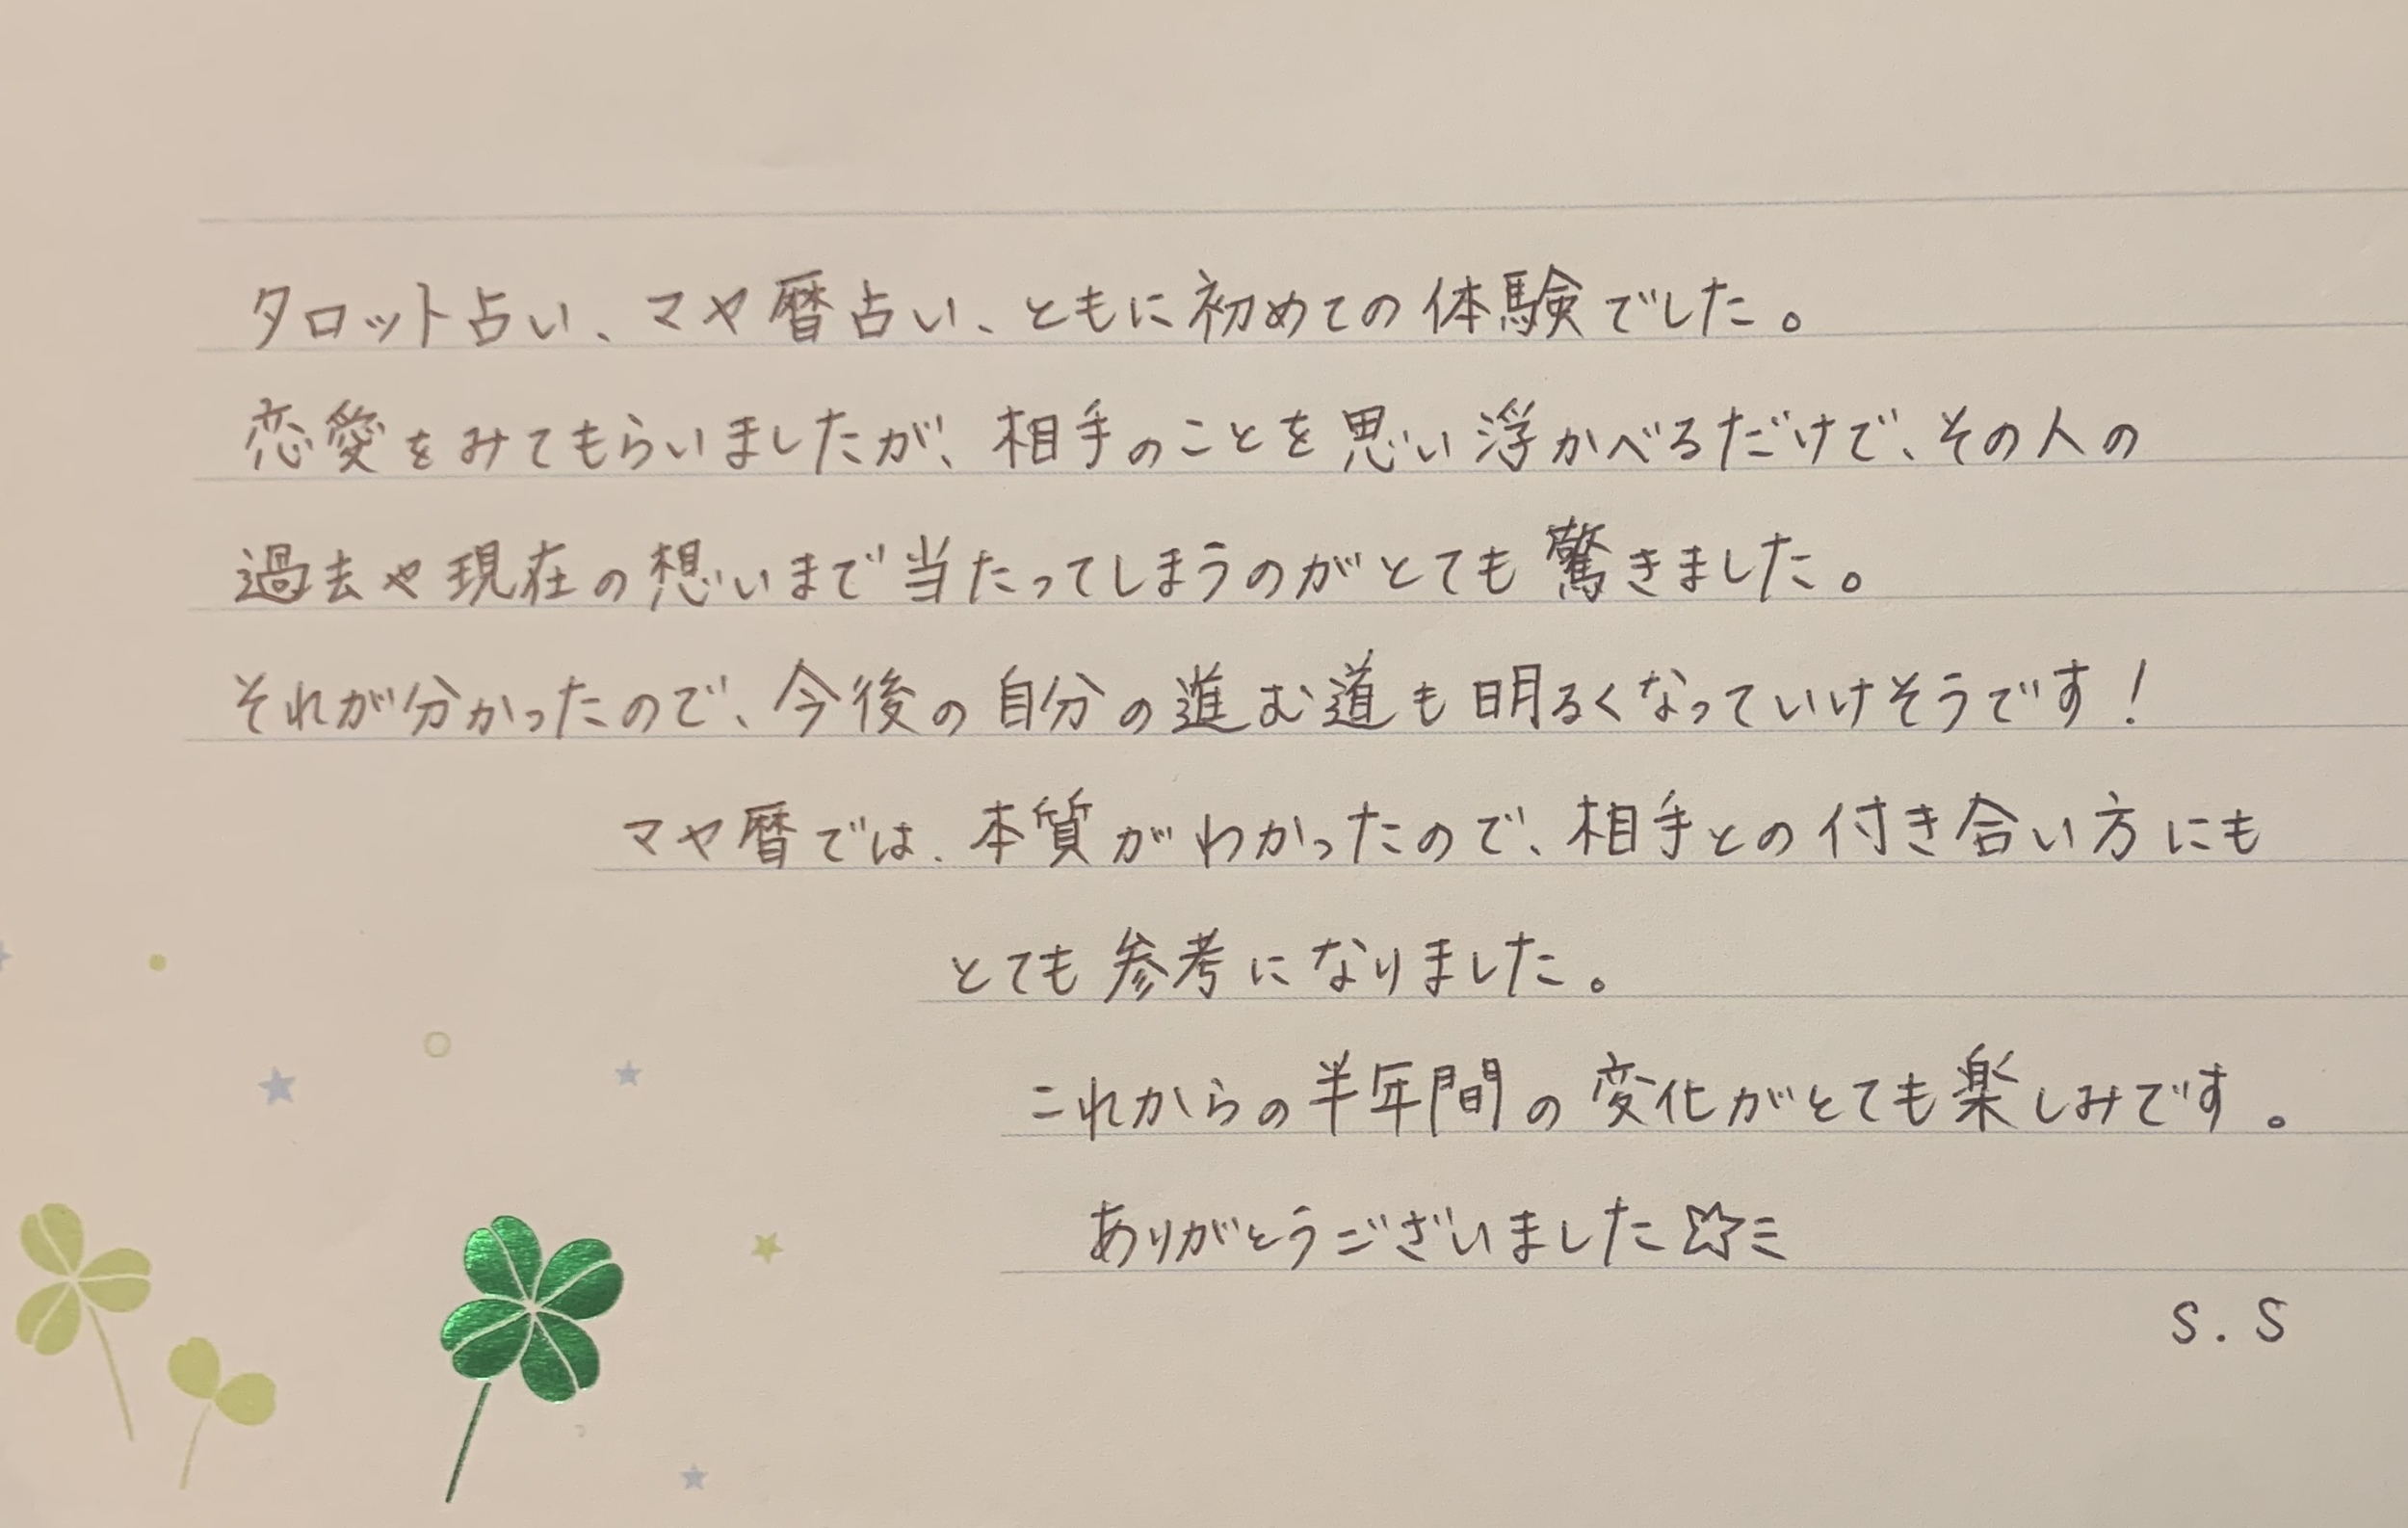 タロット占い、マヤ暦占い、ともに初めての体験でした。
恋愛をみてもらいましたが、相手のことを思い浮かべるだけで、その人の
過去や現在の想いまで当たってしまうのがとても驚きました。
それが分かったので、今後の自分の進む道も明るくなっていけそうです!
マヤ暦では、本質がわかったので、相手との付き合い方にも
とても参考になりました。
これからの半年間の変化がとても楽しみです。
ありがとうございました☆ミ
S.S